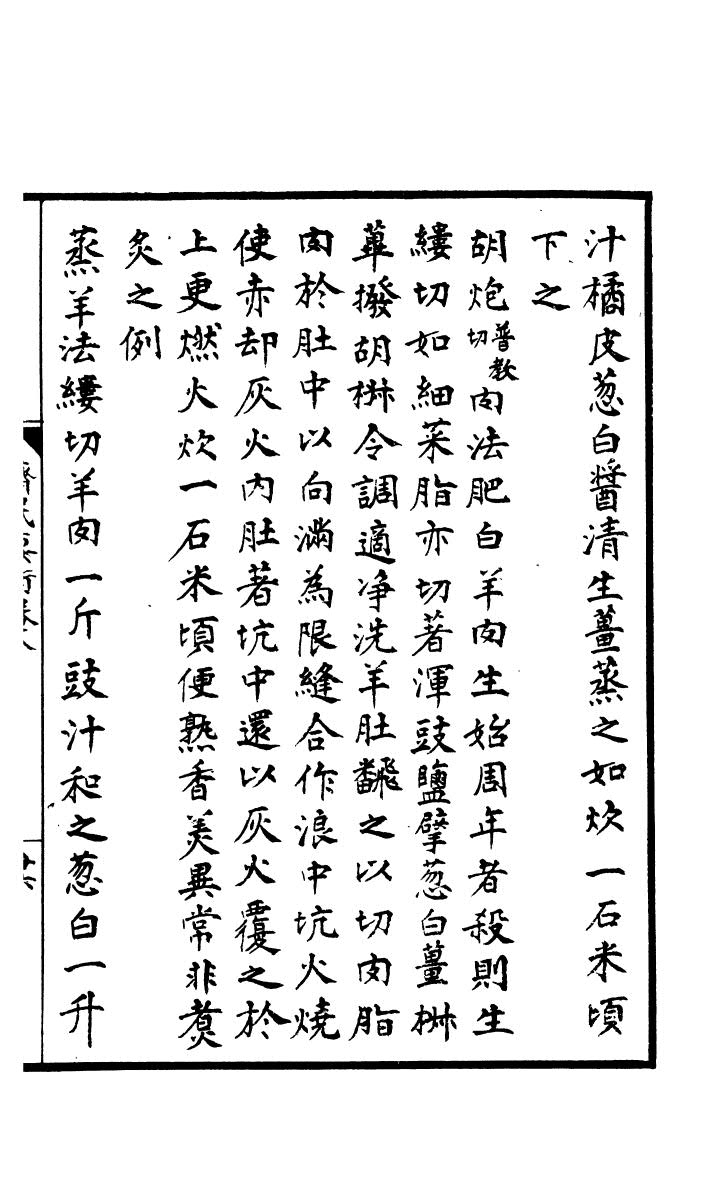 汁橘皮葱白醬清生薑蒸之如炊一石米頃
下之
胡炮普教切肉法肥白羊肉生始周年者殺則生
縷切如細菜脂亦切著渾豉鹽擘葱白薑椒
蓽撥胡椒令調適净洗羊肚飜之以切肉脂
肉於肚中以向滿為限縫合作浪中坑火燒
使赤却灰火内肚著坑中還以灰火覆之於
上更燃火炊一石米頃便熟香美異常非煑
炙之例
蒸羊法縷切羊肉一斤豉汁和之葱白一升